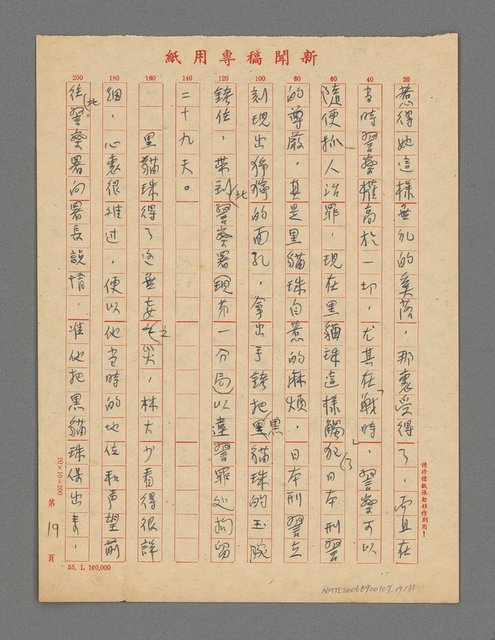 新聞稿專用紙
惹得她這樣無禮的奚落，那裏受得了，而且在
當時警察權高於一切，尤其在「戰時」，警察可以
隨便抓人治罪，現在黑貓珠這樣觸犯了日本刑警
的尊嚴，真是黑貓珠自惹的麻煩，日本刑警立
刻現出猙獰的面孔，拿出手銬把黑貓珠的玉腕
銬住，帶到北警察署（現第一分局）以違警罪處拘留
二十九天。
黑貓珠得了逐無妄之災，林大少看得很詳
細，心裏很難過，便以他當時的地位和声望前
往北警察署向署長說情，准他把黑貓珠保出來，
20
40
60
80
100
120
140
160
180
200
請珍惜紙張勿移作別用！
20×10=200
第19頁
55. 1. 100,000
NMTL20060900107. 19/31